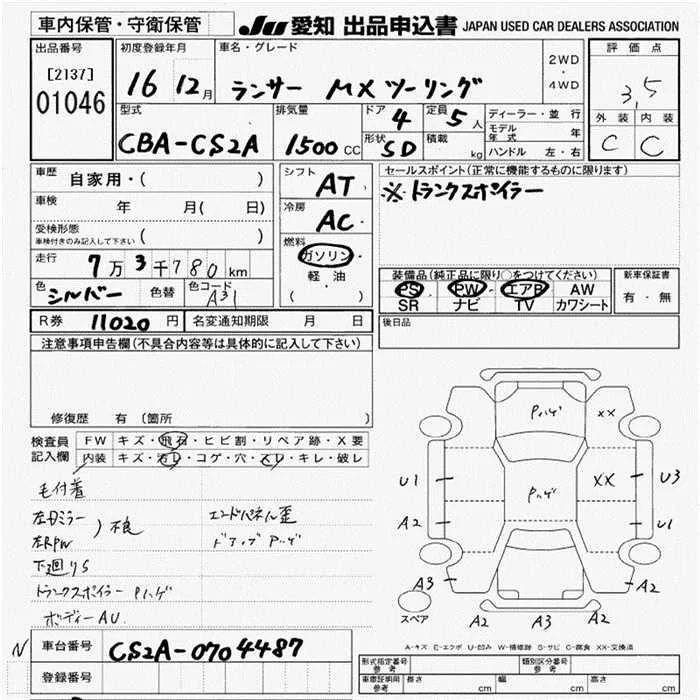 車内保管・守衛保管
JU 愛知 出品申込書 JAPAN USED CAR DEALERS ASSOCIATION
出品番号
[2137]
01046
初度登録年月
16 12月
車名・グレード
ランサー MXツーリング
2WD
・
4WD
評価点
3,5
外装 内装
C C
型式
CBA-CS2A
排気量
1500cc
ドア
4
定員
5人
形状
SD
積載
kg
ディーラー・並行
モデル年式 年
ハンドル 左・右
車歴
自家用・( )
車検
年 月( 日)
受検形態
車検付きのみ記入して下さい ( )
走行
7万3千780km
色
シルバー
色替
色コード
A31
シフト
AT
冷房
AC
燃料
ガソリン・
軽・油
( )
セールスポイント(正常に機能するものに限ります)
※トランクスポイラー
装備品(純正品に限り○をつけてください)
PS・PW・エアB AW
SR ナビ TV カワシート
新車保証書
有・無
R券 11020円 名変通知期限 月 日
後日品
注意事項申告欄(不具合内容等は具体的に記入して下さい)
修復歴 有(箇所 )
検査員
記入欄
FW キズ・飛石・ヒビ割・リペア跡・X要
内装 キズ・汚レ・コゲ・穴・スレ・キレ・破レ
毛付着
左Dミラー
左RPW
)不良
下廻りS
トランクスポイラーPハゲ
ボディーAU
エンドパネル歪
ドアップPハゲ
Pハゲ
XX
Pハゲ
XX
U1
U3
A2
U1
A3
A2
A2
A3
A2
スペア
A-キズ E-エクボ U-凹み W-補修跡 S-サビ C-腐食 XX-交換済
N
車台番号 CS2A-0704487
登録番号
形式指定番号
参考
類別区分番号
参考
車庫証明用
参考
長さ cm 幅 cm 高さ cm